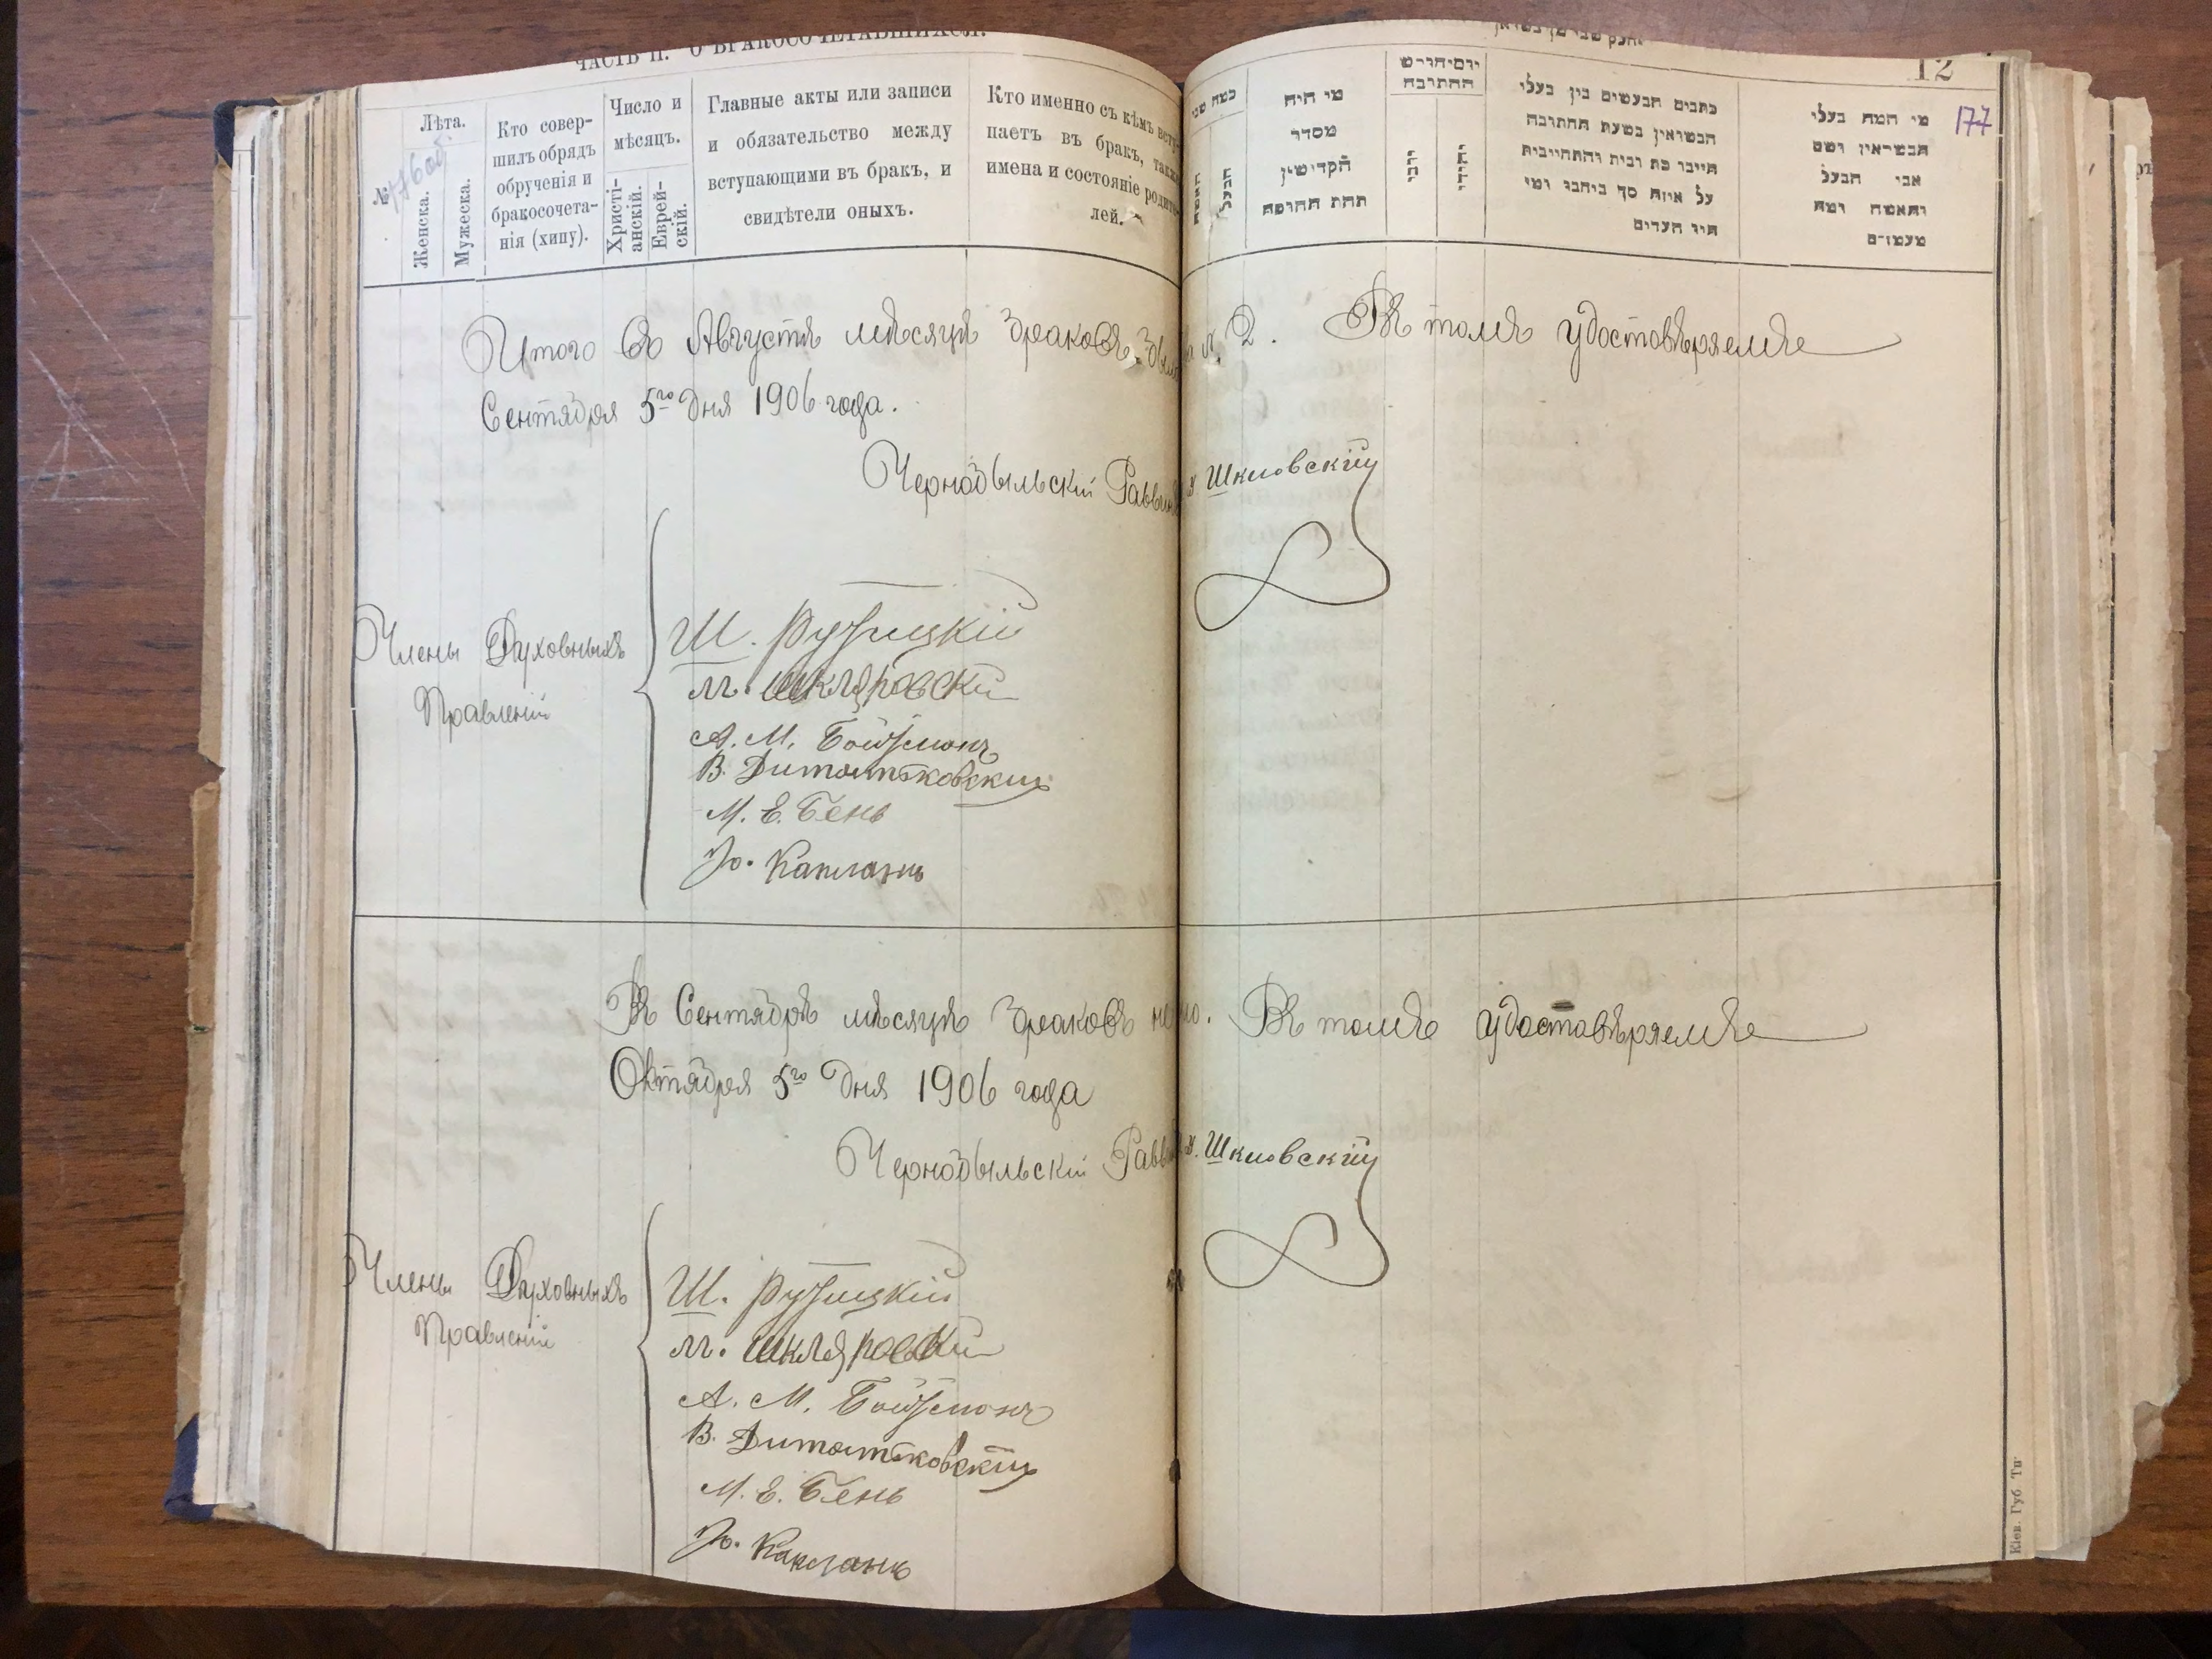 ЧАСТЬ II. О БРАКОСОЧЕТАВШИХСЯ.
№
176 об
Лѣта.
Женска.
Мужеска.
Кто совер-
шилъ обрядъ
обрученія и
бракосочета-
нія (хипу).
Число и
мѣсяцъ.
Христі-
анскій.
Еврей-
скій.
Главные акты или записи
и обязательство между
вступающими въ бракъ, и
свидѣтели оныхъ.
Кто именно съ кѣмъ всту-
паетъ въ бракъ, также
имена и состояніе родите-
лей.
12
177
כמה שני
הבעל
האשה
מי היה
מסדר
הקדישין
תחת החופה
יום וחודש
החתונה
יהודי
כתבים הנעשים בין בעלי
הנשואין בשעת החתונה
על איזה סך ביחבו ומי
היו העדים
מי המה בעלי
הנשואין ושם
אבי הבעל
והאשה ומה
מעמדם
Итого въ Августѣ мѣсяцѣ браковъ было 2. Въ томъ удостовѣряемъ
Сентября 5го дня 1906 года.
Чернобыльскій Раввинъ Шкловскій
Члены Духовныхъ
Правленій
Ш. Рузицкій
М. Шкляровскій
А. М. Бойзманъ
В. Дитятковскій
М. Е. Бень
Ю. Капланъ
Въ Сентябрѣ мѣсяцѣ браковъ не было. Въ томъ удостовѣряемъ
Октября 5го дня 1906 года
Чернобыльскій Раввинъ Шкловскій
Члены Духовныхъ
Правленій
Ш. Рузицкій
М. Шкляровскій
А. М. Бойзманъ
В. Дитятковскій
М. Е. Бень
Ю. Капланъ
Кіев. Губ. Ти